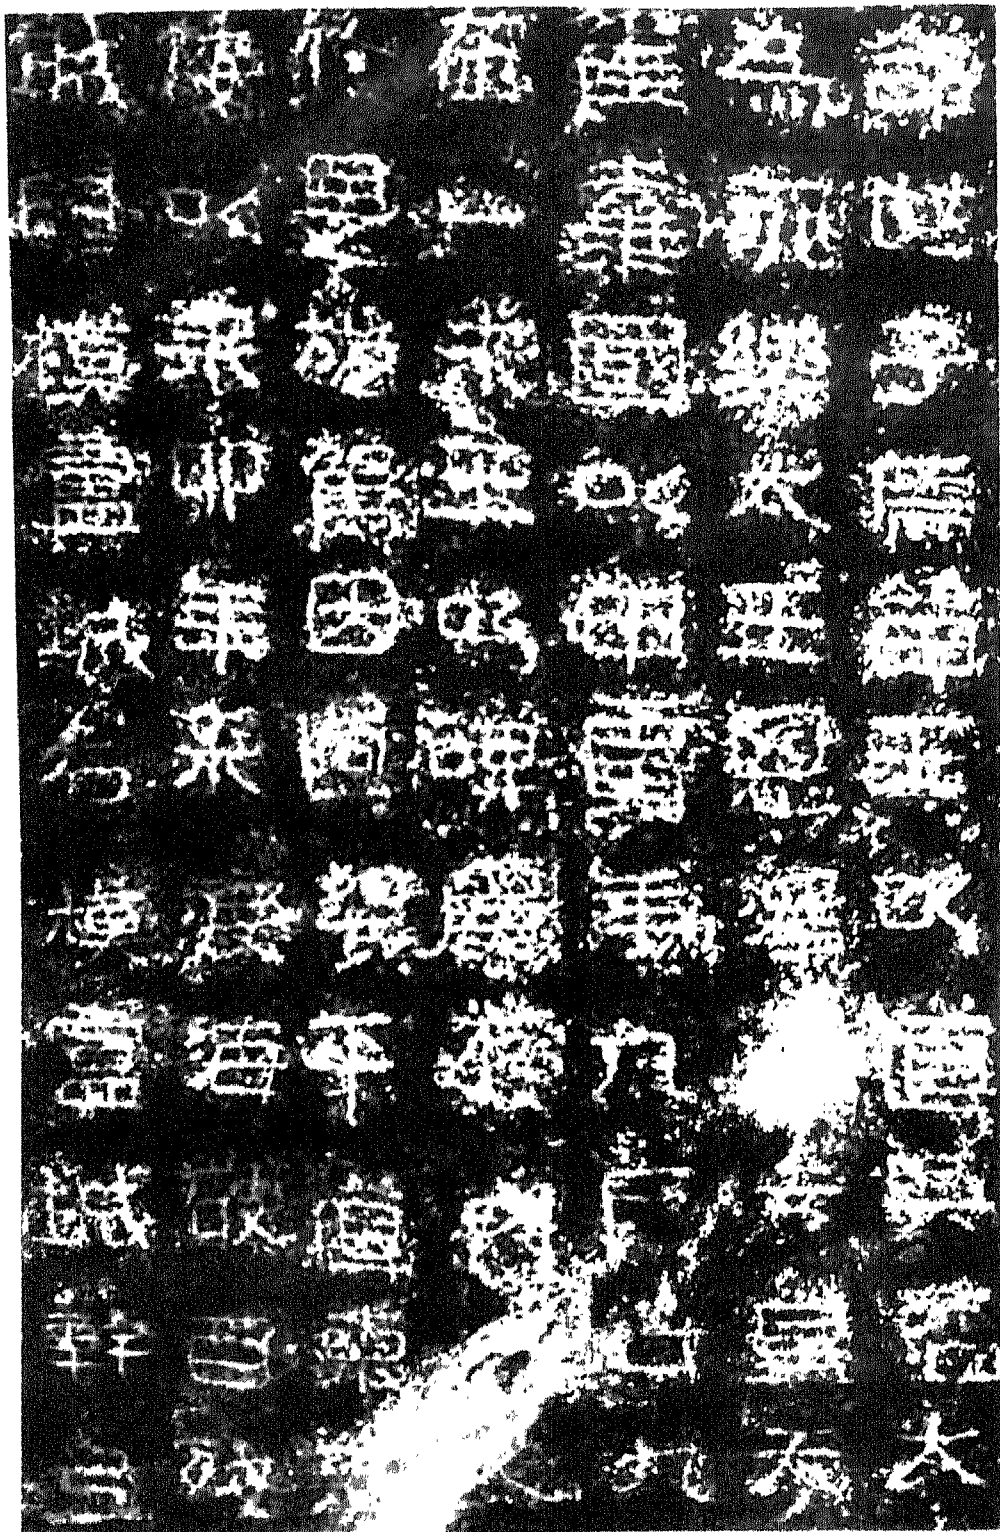 命世子儒留王以道興治大
永樂太王恩澤于皇天
駕棄國以甲寅年九月廿九
歲在乙未王以碑麗不
於是旋駕因過襄平道東來
以辛卯年來渡海破百殘
城臼模盧城各模盧城幹弖